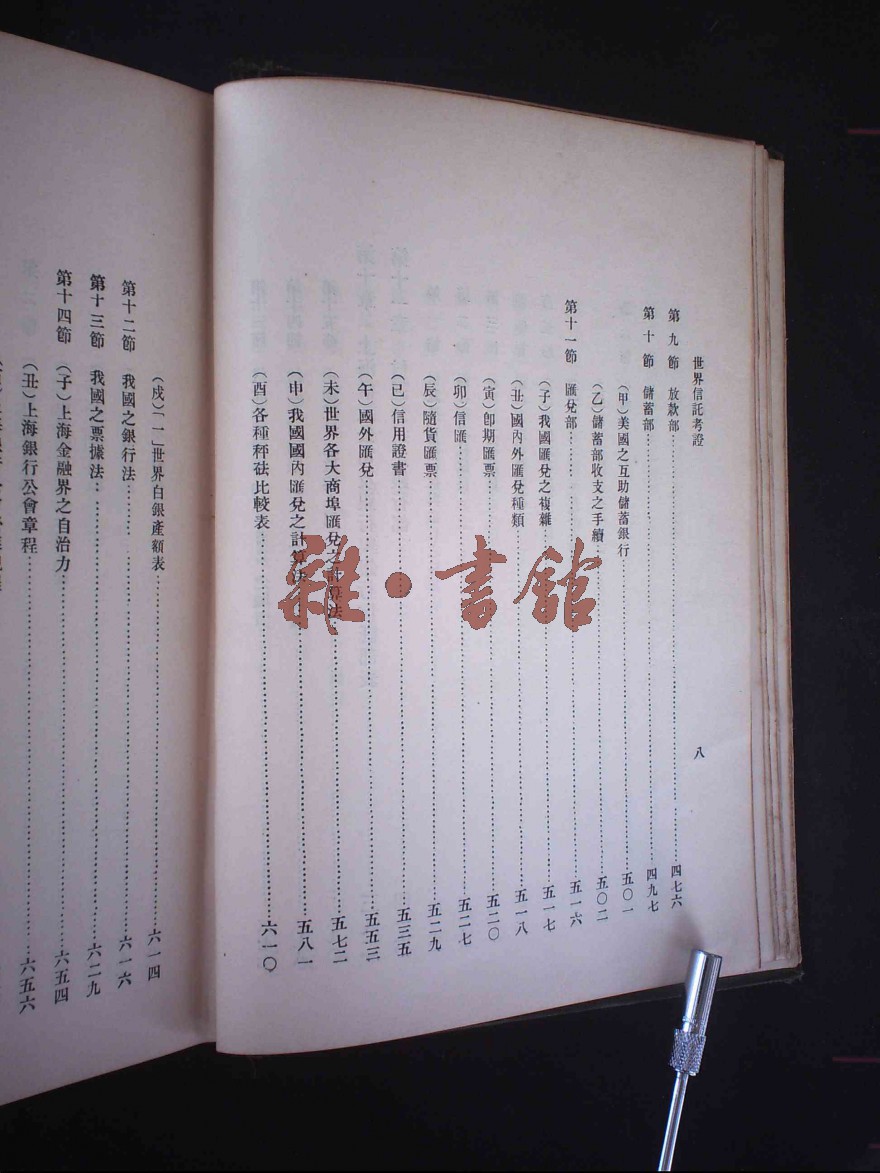 世界信託考證
八
第九節 放款部 四七六
第十節 儲蓄部 四九七
（甲）美國之互助儲蓄銀行 五〇一
（乙）儲蓄部收支之手續 五〇二
第十一節 匯兌部 五一六
（子）我國匯兌之複雜 五一七
（丑）國內外匯兌種類 五一八
（寅）卽期匯票 五二〇
（卯）信匯 五二七
（辰）隨貨匯票 五二九
（巳）信用證書 五三五
（午）國外匯兌 五五三
（未）世界各大商埠匯兌之計算法 五七二
（申）我國國內匯兌之計算法 五八一
（酉）各種秤砝比較表 六一〇
（戌）「一」世界白銀產額表 六一四
第十二節 我國之銀行法 六一六
第十三節 我國之票據法 六二九
第十四節 （子）上海金融界之自治力 六五四
（丑）上海銀行公會章程 六五六
雜·書館